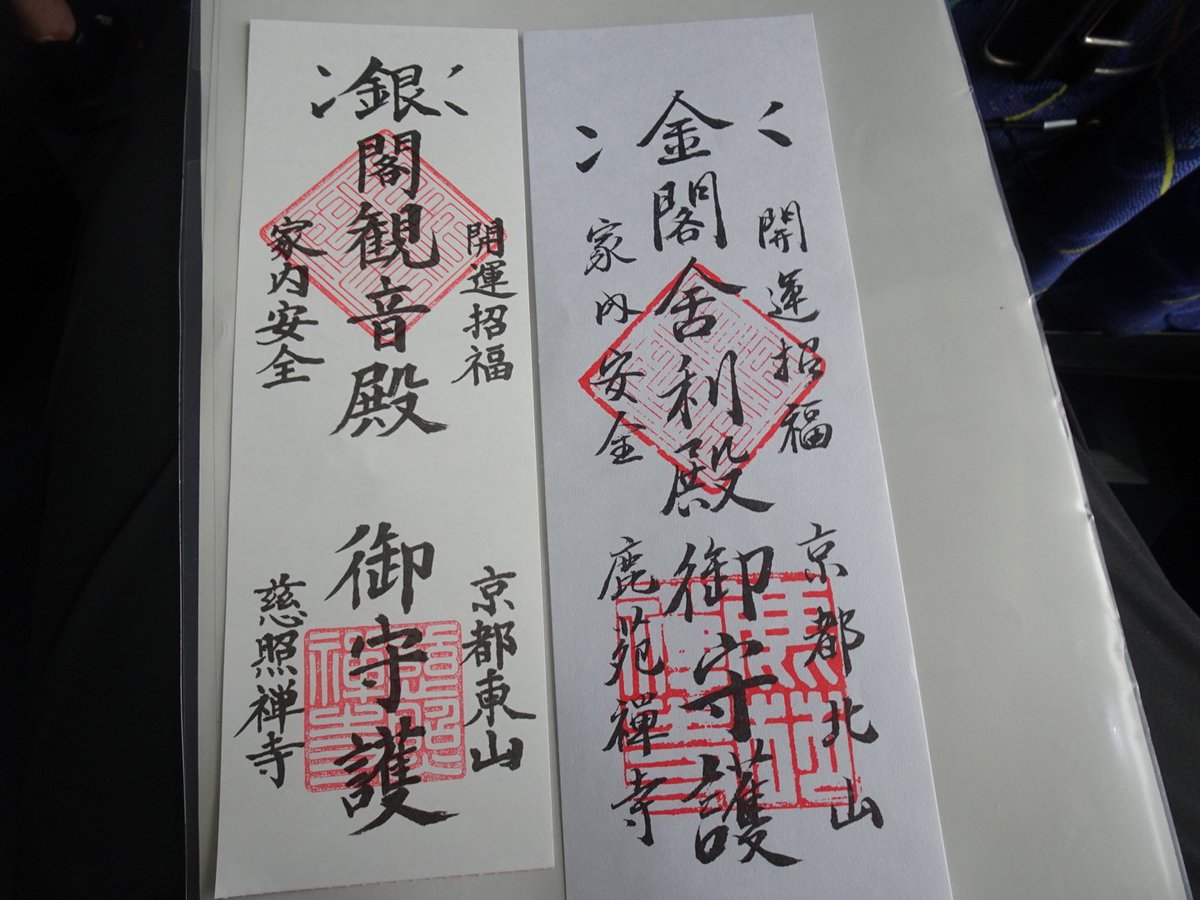 銀閣観音殿
御守護
開運招福
家内安全
京都東山
慈照禅寺
金閣舎利殿
御守護
開運招福
家内安全
京都北山
鹿苑禪寺